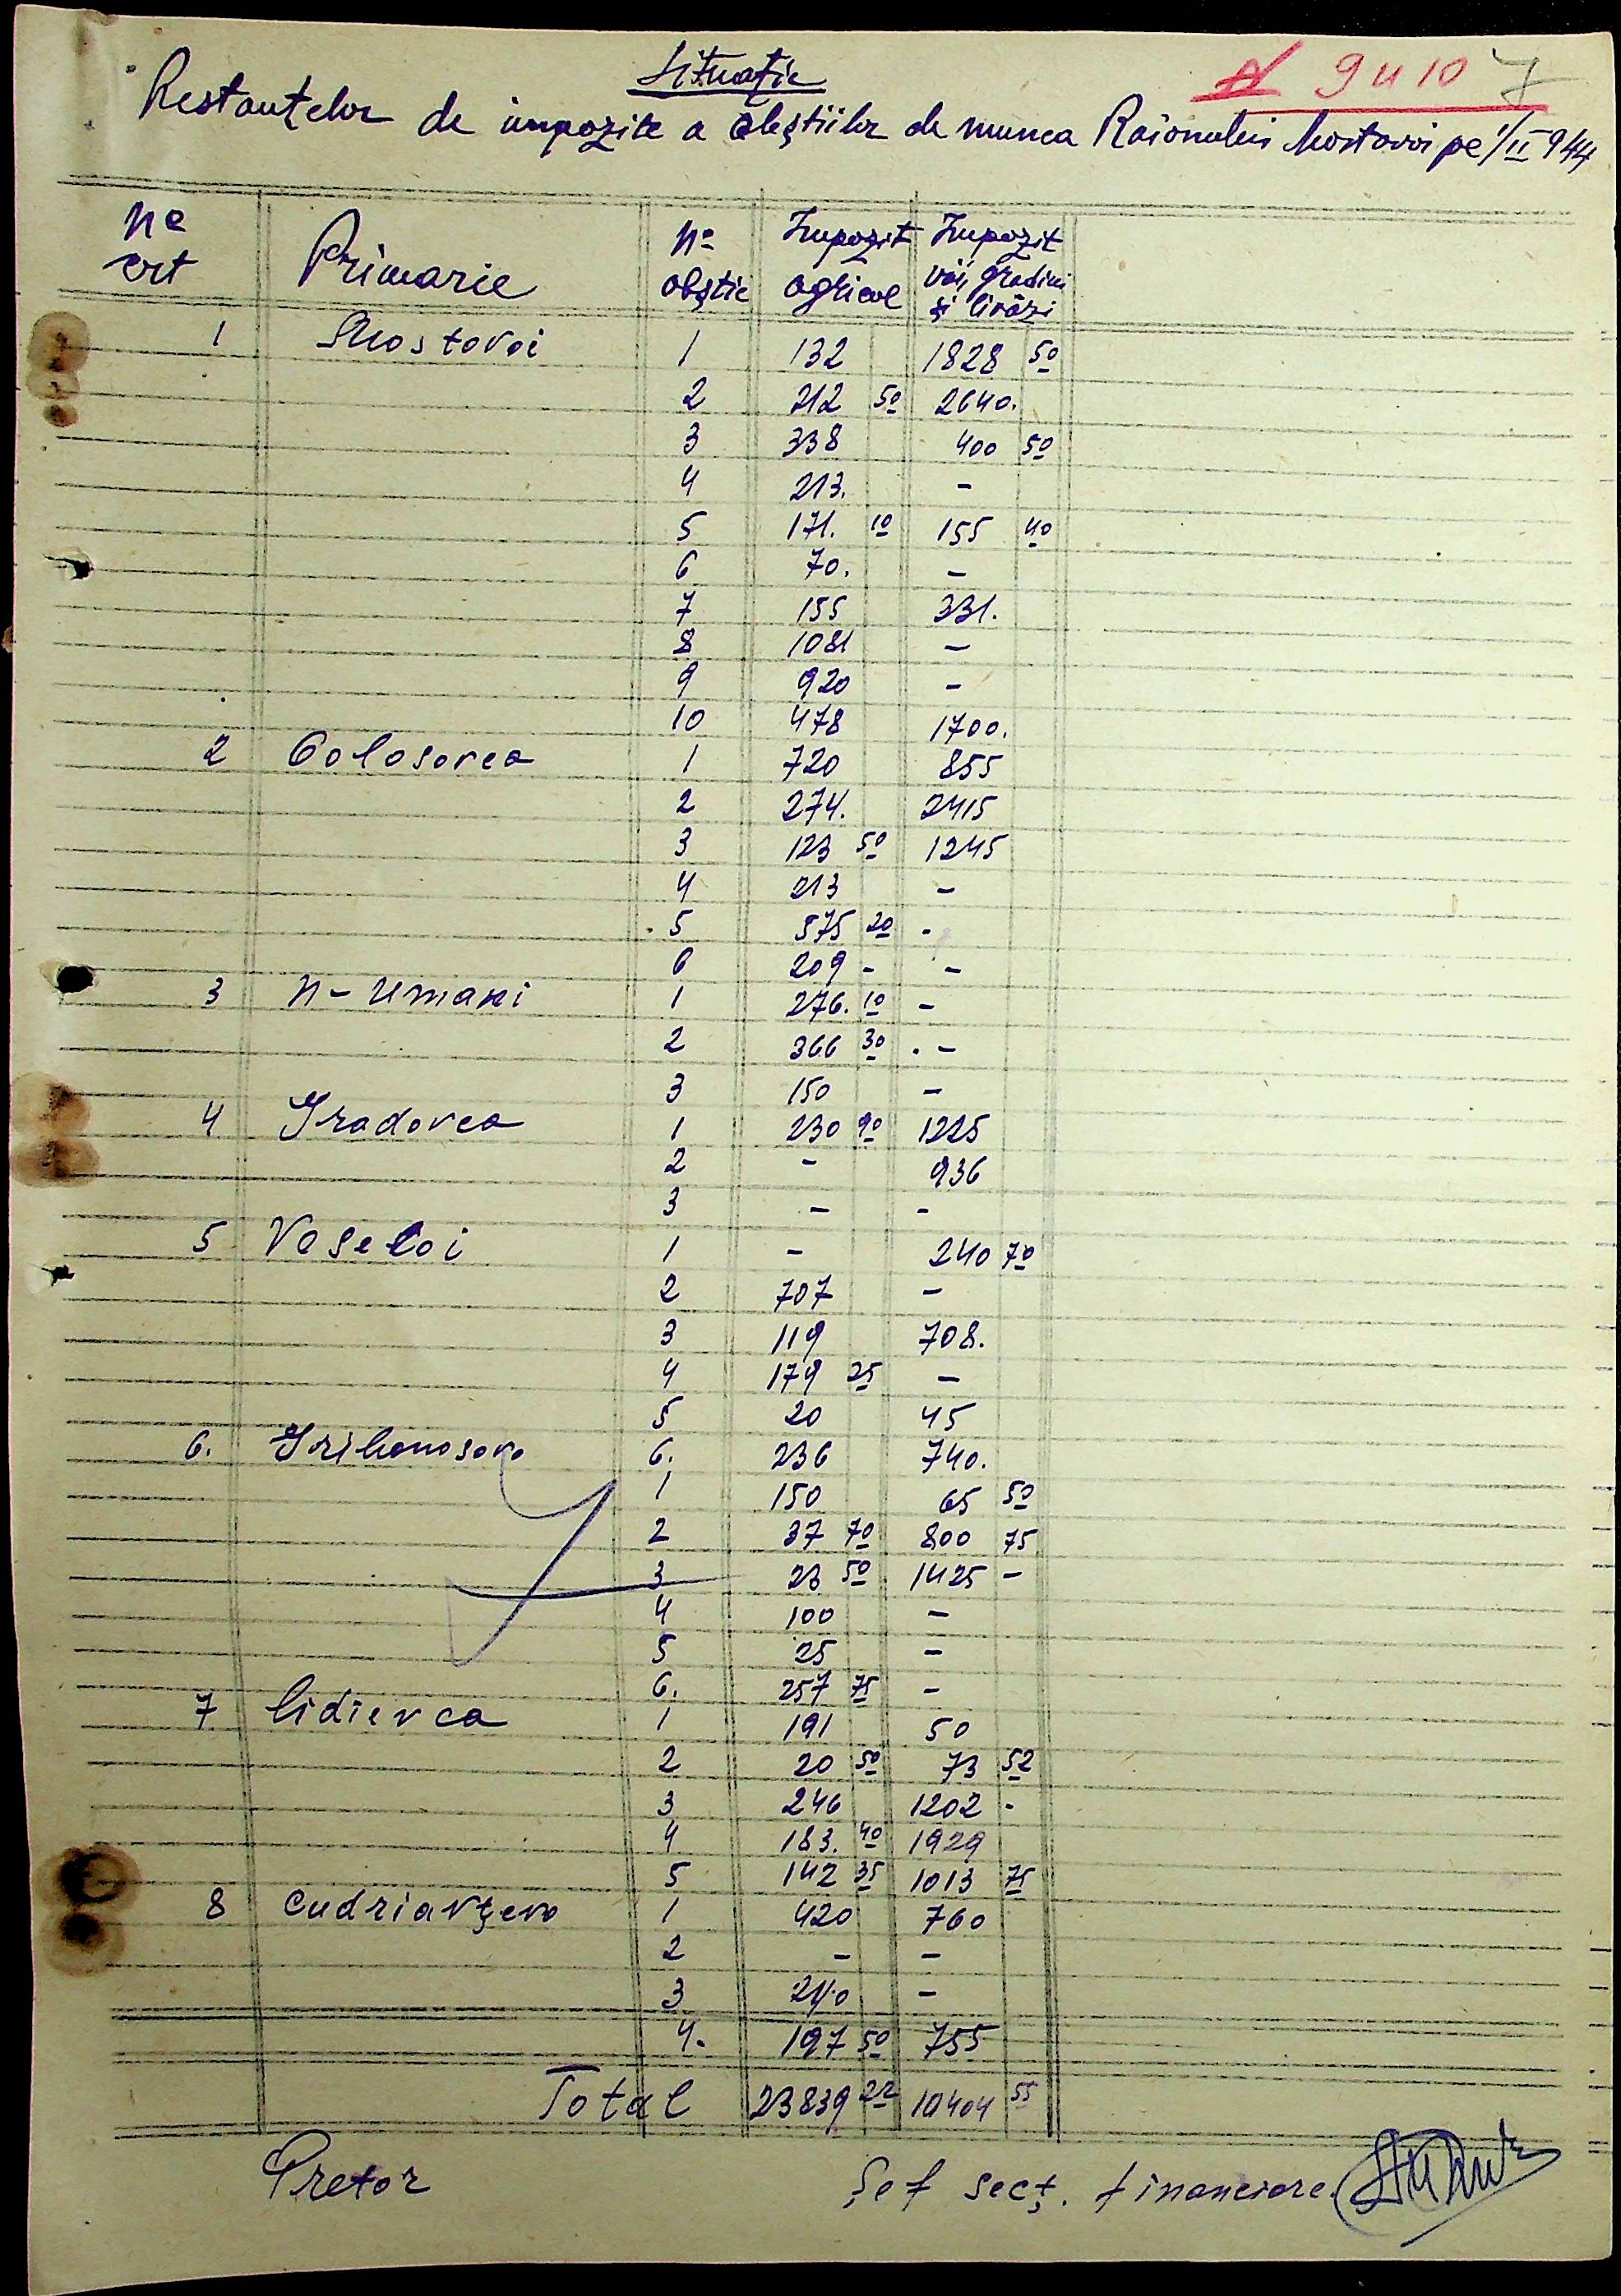 Situație
N 9 и 10 7
Restanțelor de impozite a obștiilor de munca Raionului Mostovoi pe 1/II 944
No crt Primarie No obștie Impozit agricol Impozit vii, gradini și livăzi
1 Mostovoi 1 132 1828 50
2 212 50 2640.
3 338 400 50
4 213. -
5 171. 10 155 40
6 70. -
7 155 331.
8 1081 -
9 920 -
10 478 1700.
2 Colosovca 1 720 855
2 274. 2415
3 123 50 1245
4 213 -
5 575 20 -
6 209 - -
3 N-Umani 1 276. 10 -
2 366 30 . -
3 150 -
4 Gradovca 1 230 90 1225
2 - 936
3 - -
5 Veseloi 1 - 240 70
2 707 -
3 119 708.
4 179 25 -
5 20 45
6. Grihonosovo 6. 236 740.
1 150 65 50
2 37 70 800 75
3 23 50 1425 -
4 100 -
5 25 -
6. 257 75 -
7 Lidievca 1 191 50
2 20 50 73 52
3 246 1202 -
4 183. 40 1929
5 142 35 1013 75
8 Cudriavțevo 1 420 760
2 - -
3 240 -
4. 197 50 755
Total 23839 22 10404 55
Pretor Șef secț. financiare.